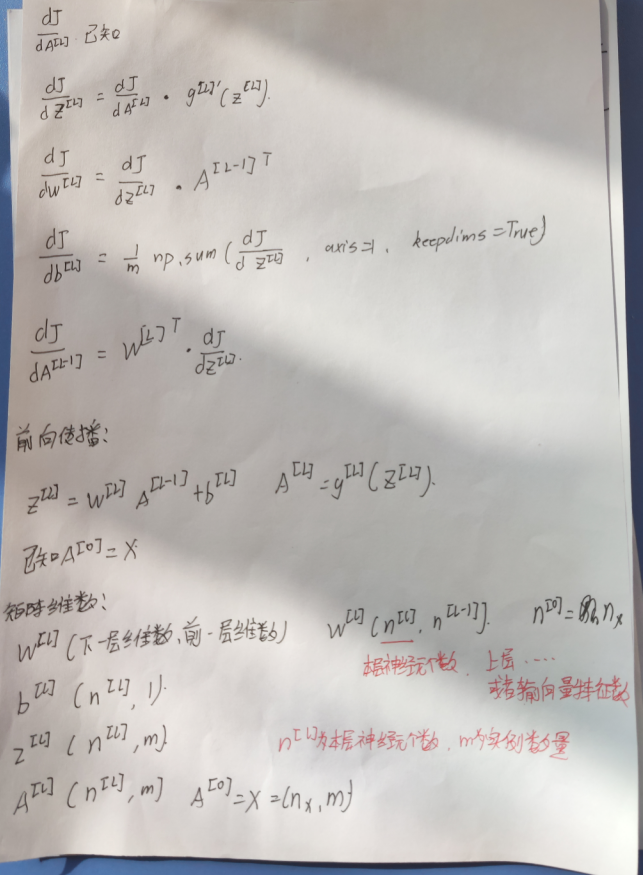 dJ/dA^[L] 已知
dJ/dZ^[L] = dJ/dA^[L] · g^[L]'(z^[L]).
dJ/dw^[L] = dJ/dz^[L] · A^[L-1]T
dJ/db^[L] = 1/m np.sum(dJ/dZ^[L], axis=1, keepdims=True)
dJ/dA^[L-1] = W^[L]T · dJ/dZ^[L].
前向传播:
z^[L] = w^[L] A^[L-1] + b^[L] A^[L] = g^[L](Z^[L]).
已知A^[0] = X.
矩阵维数:
W^[L] (下一层维数,前一层维数) W^[L] (n^[L], n^[L-1]]. n^[0] = n_x
本层神经元个数, 上层....
或者输向量特征数
b^[L] (n^[L], 1).
z^[L] (n^[L], m)
n^[L]为本层神经元个数, m为实例数量
A^[L] (n^[L], m] A^[0] = X = (n_x, m)